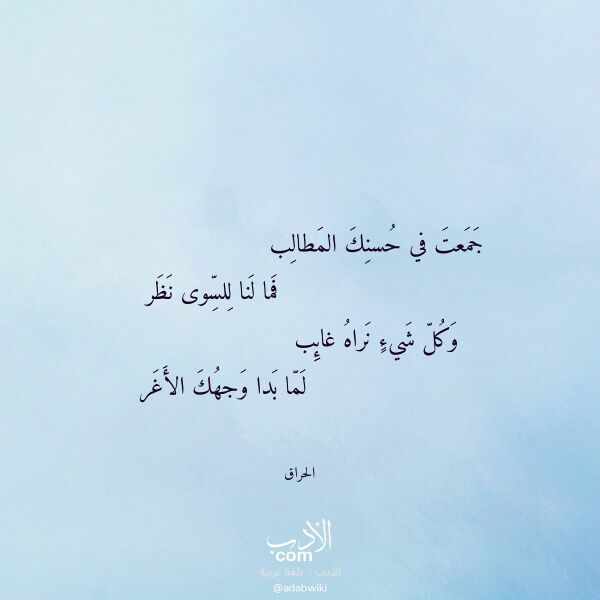 جَمَعتَ في حُسنِكَ المَطالِب
فَما لَنا لِلسِّوى نَظَر
وَكُلّ شَيءٍ نَراهُ غايِٕب
لَمّا بَدا وَجهُكَ الأَغَر
الحراق
الأدب
com
الأدب .. بلغة عربية
@adabwiki